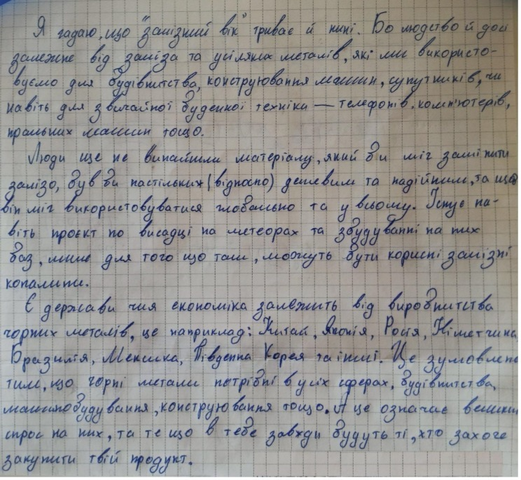 Я гадаю, що "залізний вік" триває й нині. Бо людство й досі
залежне від заліза та усіляких металів, які ми використо-
вуємо для будівництва, конструювання машин, супутників, чи
навіть для звичайної буденної техніки — телефонів, комп'ютерів,
пральних машин тощо.
Люди ще не винайшли матеріалу, який би міг замінити
залізо, був би настільким (відносно) дешевим та надійним, та щоб
він міг використовуватися глобально та у всьому. Існує на-
віть проєкт по висадці на метеорах та збудуванні на них
баз, лише для того що там, можуть бути корисні залізні
копалини.
Є держави чия економіка залежить від виробництва
чорних металів, це наприклад: Китай, Японія, Росія, Німеччина,
Бразилія, Мексика, Південна Корея та інші. Це зумовлено
тим, що чорні метали потрібні в усіх сферах, будівництва,
машинобудування, конструювання тощо. А це означає великий
спрос на них, та те що в тебе завжди будуть ті, хто захоче
закупити твій продукт.